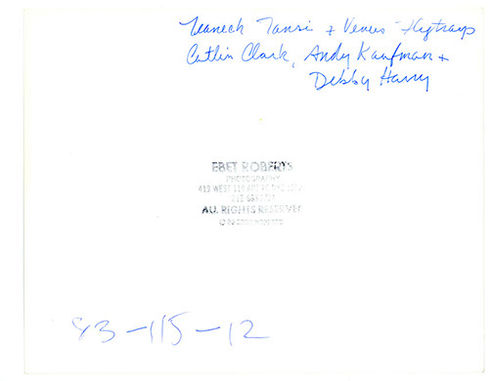 Teaneck Tanzi + Venus Flytrap
Catlin Clark, Andy Kaufman +
Debby Harry
EBET ROBERTS
PHOTOGRAPHY
ALL RIGHTS RESERVED
83-115-12